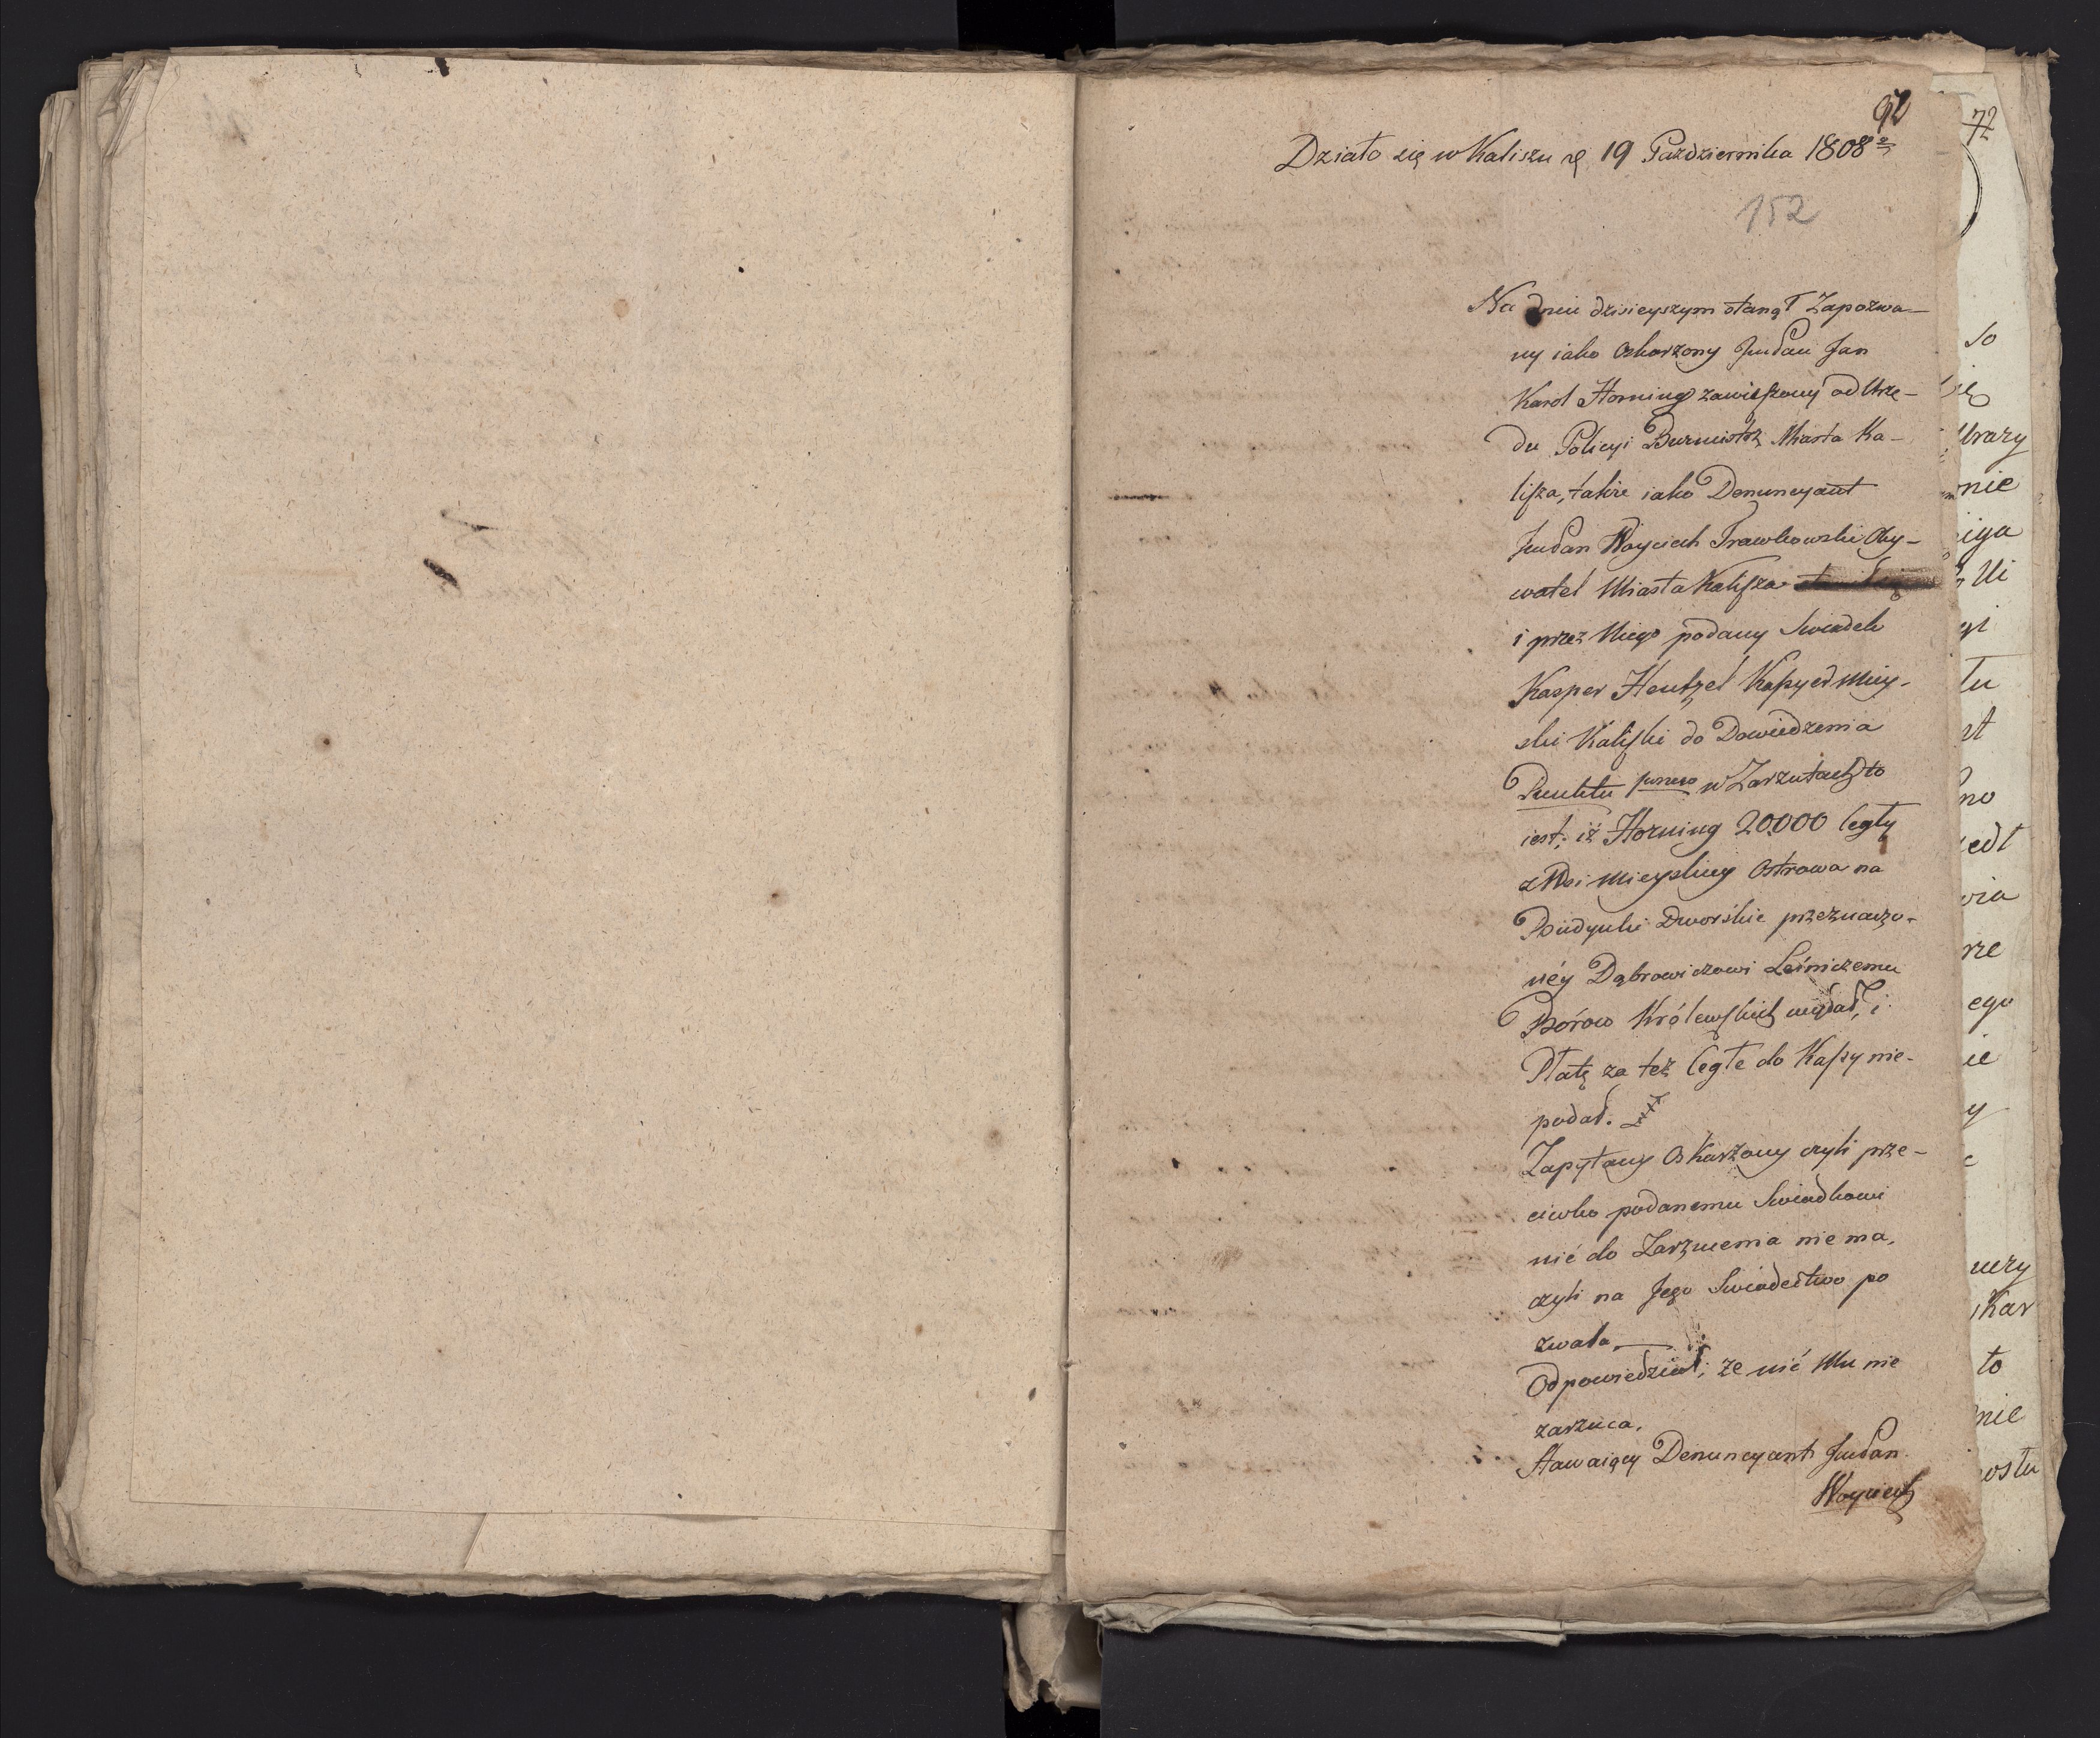 92
Działo się w Kaliszu 19 Października 1808
152
Na dniu dzisieyszym stanął Zapozwa-
ny iako Oskarzony Jmdan Jan
Karol Horning zawieszony od Urzę-
du Policyi Burmistrz Miasta Ka-
lisza, także iako Denuncyant
Jmdan Woyciech Trawkowski Oby-
watel Miasta Kalisza
i przez Niego podany Swiadek
Kasper Hentzel Kassyer Miey-
ski Kaliski do Dowiedzenia
Punktu w Zarzutach to
iest; iż Horning 20,000 Cegły
z Wsi Mieyskiey Ostrowa na
Budynki Dworskie przeznaczo-
néy Dąbrowiczowi Leśniczemu
Borów Królewskich wydał, i
Płatę za też Cegłe do Kassy nie-
podał.
Zapytany Oskarżony czyli prze-
ciwko podanemu Swiadkowi
nić do Zarzucenia nie ma,
czyli na Jego Swiadectwo po
zwala
Odpowiedział; że nić Mu nie
zarzuca.
Stawaiący Denuncyant Jmdan
Woyciech
72
so
brazy
nie
iga
tu
st
no
edt
via
rze
ego
ie
y
kar
to
nie
ostu